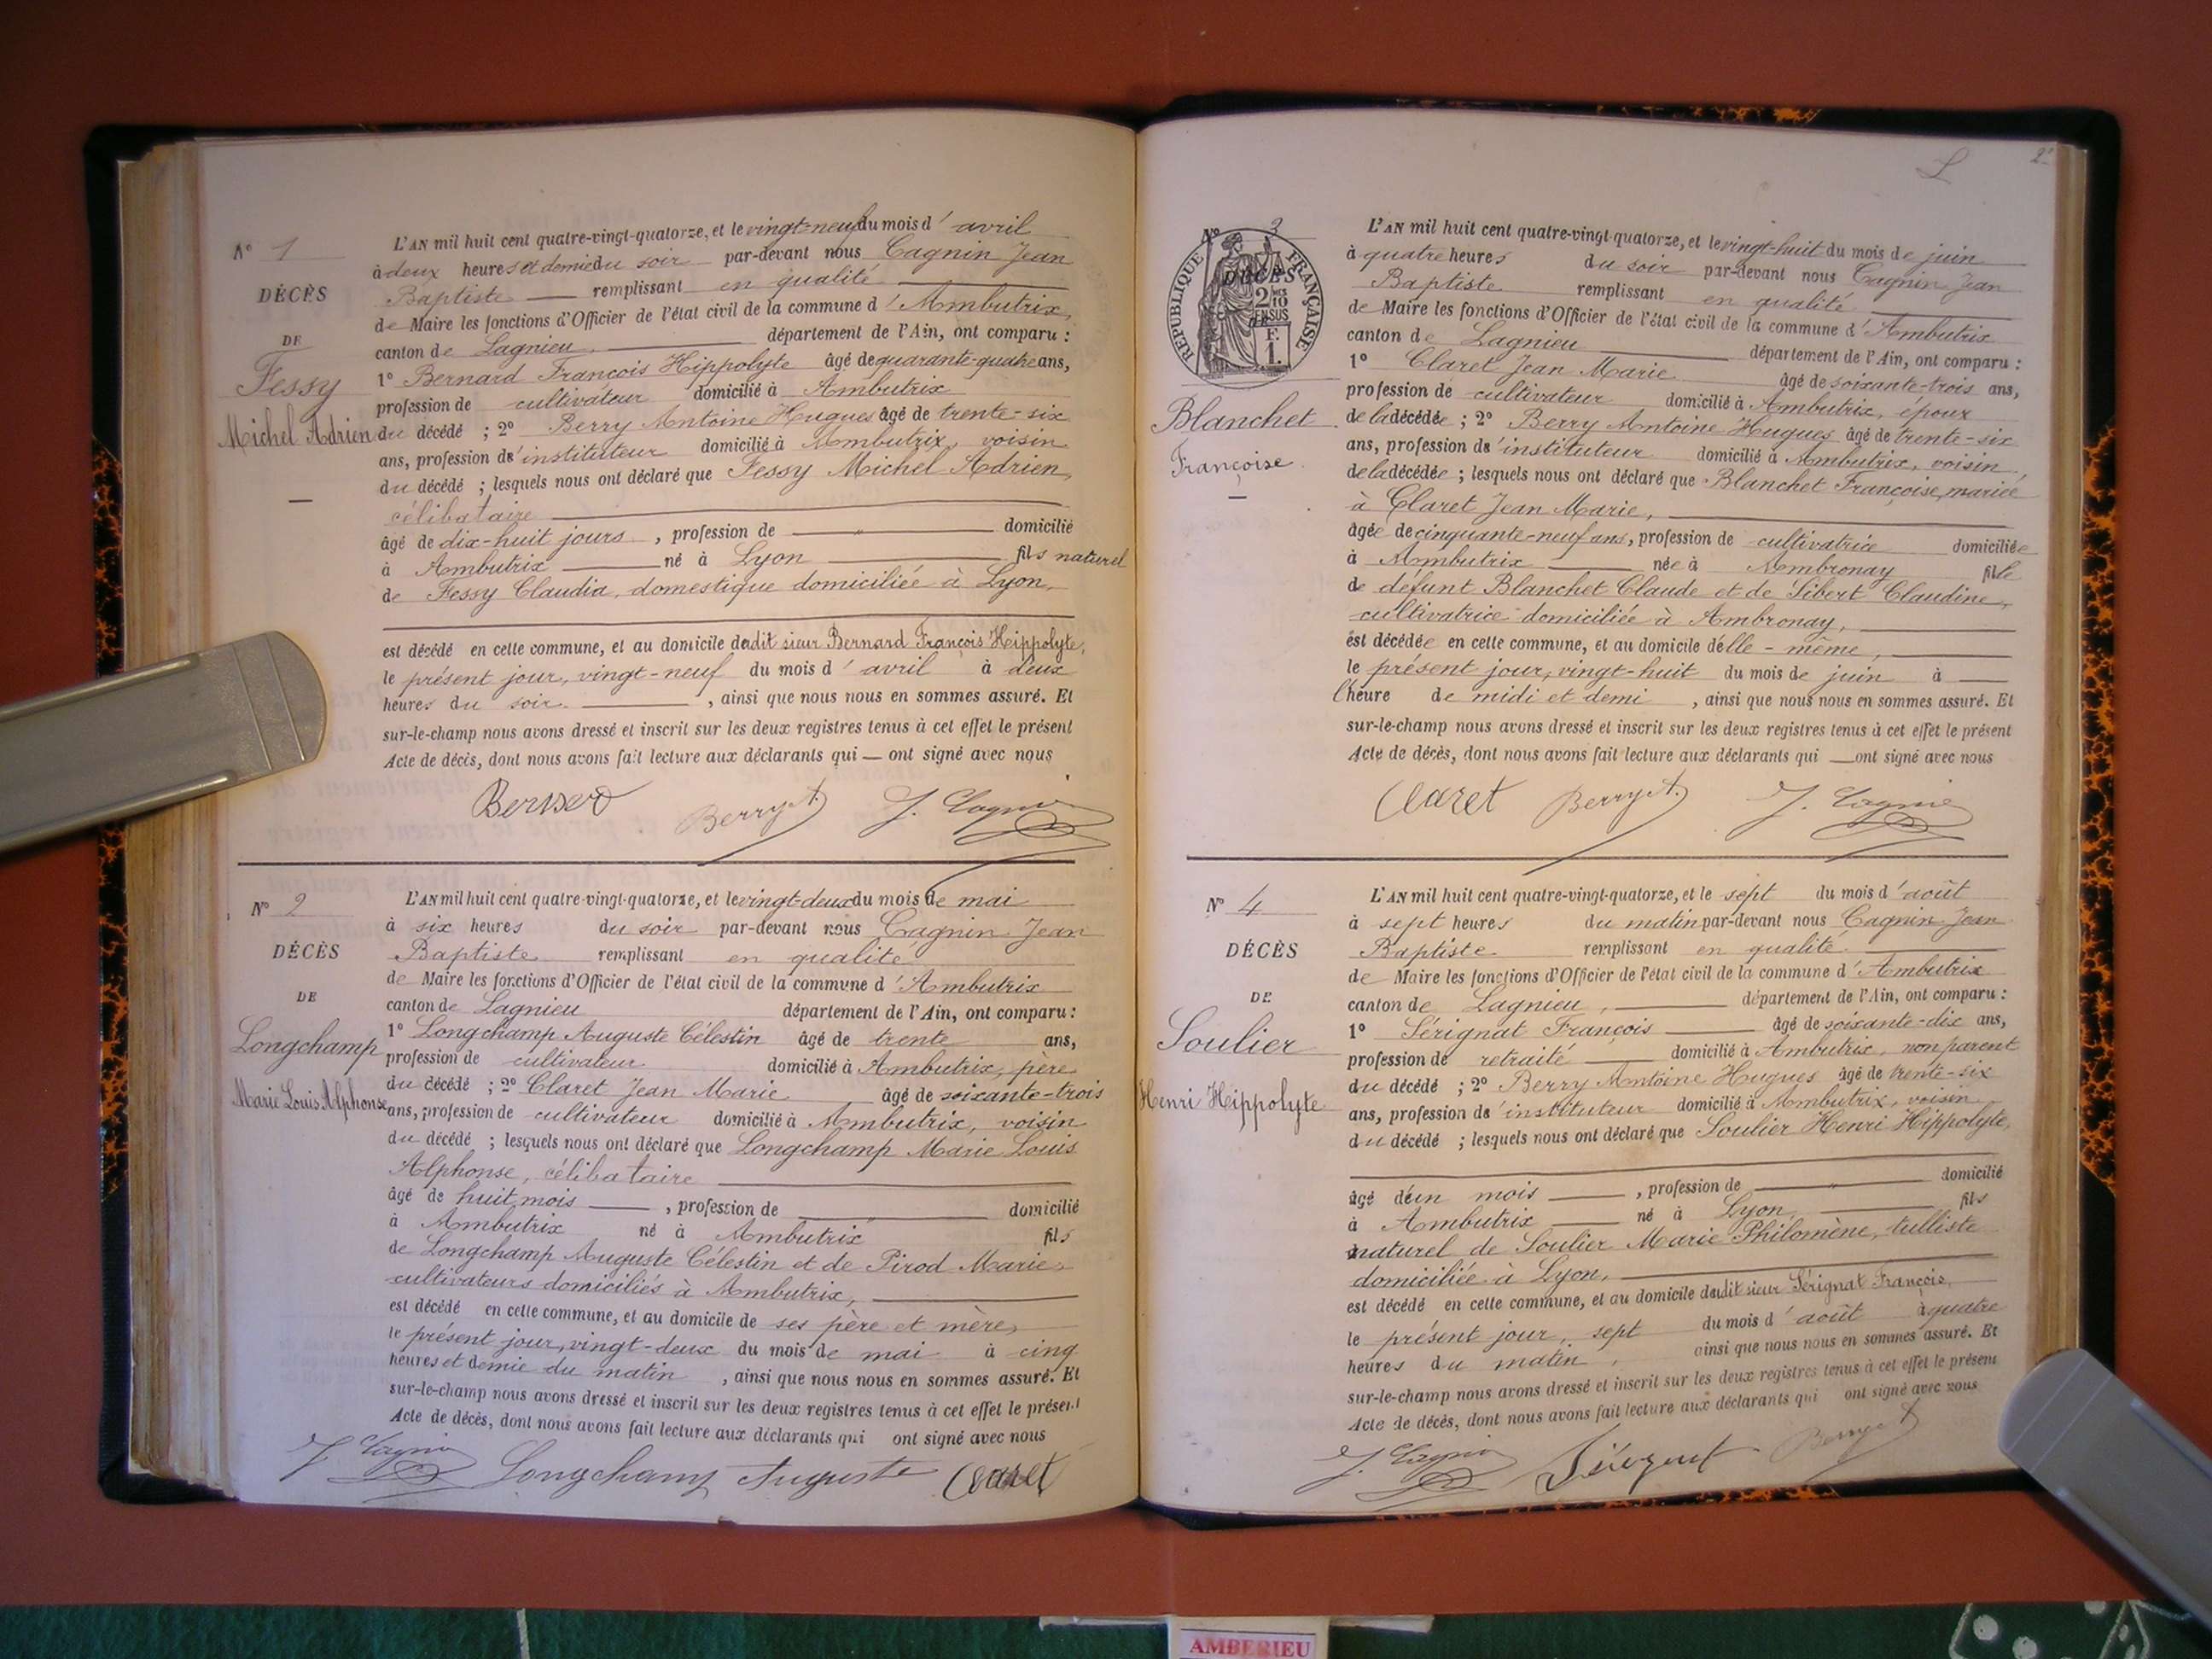 N° 1
DÉCÈS
DE
Fessy
Michel Adrien
L'AN mil huit cent quatre-vingt-quatorze, et le vingt-neuf du mois d'avril
à deux heures et demie du soir par-devant nous Cagnin Jean
Baptiste remplissant en qualité
de Maire les fonctions d'Officier de l'état civil de la commune d'Ambutrix,
canton de Lagnieu département de l'Ain, ont comparu :
1° Bernard François Hippolyte âgé de quarante-quatre ans,
profession de cultivateur domicilié à Ambutrix
du décédé ; 2° Berry Antoine Hugues âgé de trente-six
ans, profession d'instituteur domicilié à Ambutrix, voisin
du décédé ; lesquels nous ont déclaré que Fessy Michel Adrien,
célibataire
âgé de dix-huit jours, profession de " domicilié
à Ambutrix né à Lyon fils naturel
de Fessy Claudia, domestique domiciliée à Lyon,
est décédé en cette commune, et au domicile dudit sieur Bernard François Hippolyte,
le présent jour, vingt-neuf du mois d'avril à deux
heures du soir, ainsi que nous nous en sommes assuré. Et
sur-le-champ nous avons dressé et inscrit sur les deux registres tenus à cet effet le présent
Acte de décès, dont nous avons fait lecture aux déclarants qui — ont signé avec nous
Bernard Berry A. J. Cagnin
N° 2
DÉCÈS
DE
Longchamp
Marie Louis Alphonse
L'AN mil huit cent quatre-vingt-quatorze, et le vingt-deux du mois de mai
à six heures du soir par-devant nous Cagnin Jean
Baptiste remplissant en qualité
de Maire les fonctions d'Officier de l'état civil de la commune d'Ambutrix
canton de Lagnieu département de l'Ain, ont comparu :
1° Longchamp Auguste Célestin âgé de trente ans,
profession de cultivateur domicilié à Ambutrix, père
du décédé ; 2° Claret Jean Marie âgé de soixante-trois
ans, profession de cultivateur domicilié à Ambutrix, voisin
du décédé ; lesquels nous ont déclaré que Longchamp Marie Louis
Alphonse, célibataire
âgé de huit mois, profession de " domicilié
à Ambutrix né à Ambutrix fils
de Longchamp Auguste Célestin et de Pirod Marie,
cultivateurs domiciliés à Ambutrix,
est décédé en cette commune, et au domicile de ses père et mère,
le présent jour, vingt-deux du mois de mai à cinq
heures et demie du matin, ainsi que nous nous en sommes assuré. Et
sur-le-champ nous avons dressé et inscrit sur les deux registres tenus à cet effet le présent
Acte de décès, dont nous avons fait lecture aux déclarants qui ont signé avec nous
J. Cagnin Longchamp Auguste Claret
2
N° 3
DÉCÈS
RÉPUBLIQUE FRANÇAISE
2/10
EN SUS
F.
1.
DE
Blanchet
Françoise
L'AN mil huit cent quatre-vingt-quatorze, et le vingt-huit du mois de juin
à quatre heures du soir par-devant nous Cagnin Jean
Baptiste remplissant en qualité
de Maire les fonctions d'Officier de l'état civil de la commune d'Ambutrix
canton de Lagnieu département de l'Ain, ont comparu :
1° Claret Jean Marie âgé de soixante-trois ans,
profession de cultivateur domicilié à Ambutrix, époux
de la décédée ; 2° Berry Antoine Hugues âgé de trente-six
ans, profession d'instituteur domicilié à Ambutrix, voisin,
de la décédée ; lesquels nous ont déclaré que Blanchet Françoise, mariée
à Claret Jean Marie,
âgée de cinquante-neuf ans, profession de cultivatrice domiciliée
à Ambutrix née à Ambronay fille
de défunt Blanchet Claude et de Sibert Claudine,
cultivatrice domiciliée à Ambronay,
est décédée en cette commune, et au domicile d'elle-même,
le présent jour, vingt-huit du mois de juin à
l'heure de midi et demi, ainsi que nous nous en sommes assuré. Et
sur-le-champ nous avons dressé et inscrit sur les deux registres tenus à cet effet le présent
Acte de décès, dont nous avons fait lecture aux déclarants qui — ont signé avec nous
Claret Berry A. J. Cagnin
N° 4
DÉCÈS
DE
Soulier
Henri Hippolyte
L'AN mil huit cent quatre-vingt-quatorze, et le sept du mois d'août
à sept heures du matin par-devant nous Cagnin Jean
Baptiste remplissant en qualité
de Maire les fonctions d'Officier de l'état civil de la commune d'Ambutrix
canton de Lagnieu, département de l'Ain, ont comparu :
1° Sérignat François âgé de soixante-dix ans,
profession de retraité domicilié à Ambutrix, non parent
du décédé ; 2° Berry Antoine Hugues âgé de trente-six
ans, profession d'instituteur domicilié à Ambutrix, voisin
du décédé ; lesquels nous ont déclaré que Soulier Henri Hippolyte,
âgé d'un mois, profession de " domicilié
à Ambutrix né à Lyon, fils
naturel de Soulier Marie Philomène, tulliste
domiciliée à Lyon,
est décédé en cette commune, et au domicile dudit sieur Sérignat François,
le présent jour, sept du mois d'août à quatre
heures du matin, ainsi que nous nous en sommes assuré. Et
sur-le-champ nous avons dressé et inscrit sur les deux registres tenus à cet effet le présent
Acte de décès, dont nous avons fait lecture aux déclarants qui ont signé avec nous
J. Cagnin Sérignat Berry A
AMBERIEU